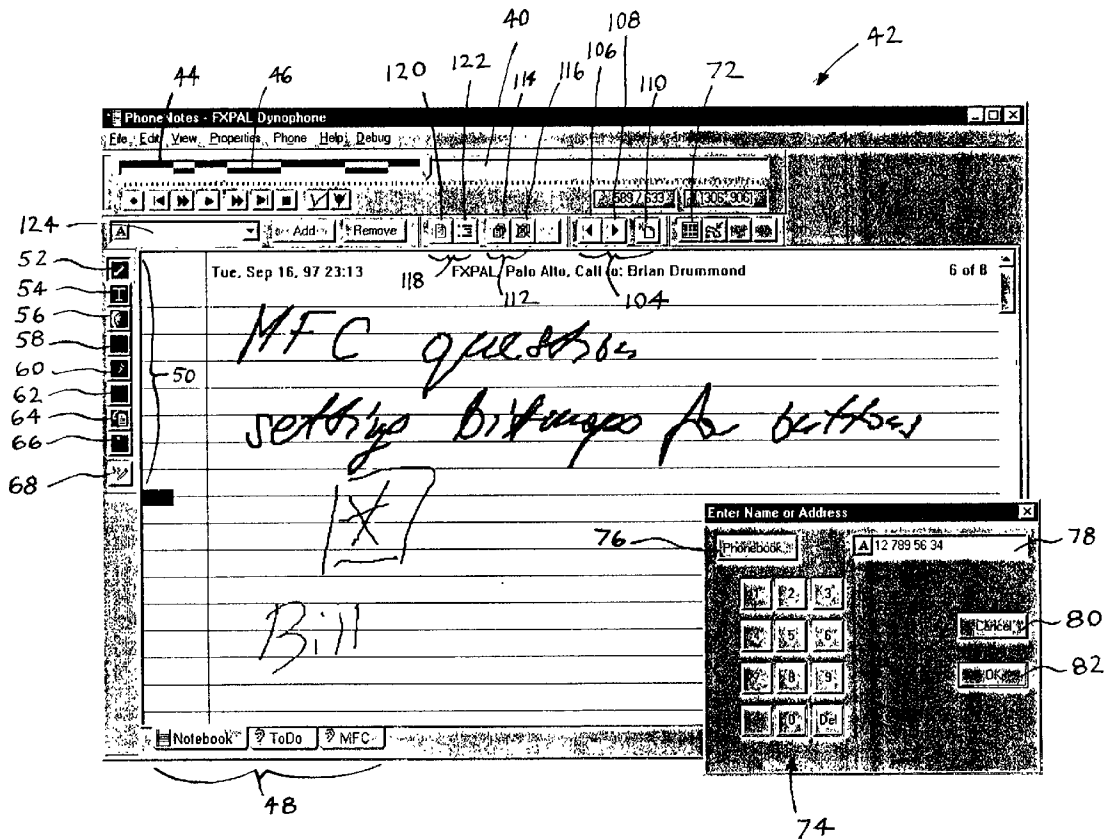 40 106 108 42
44 46 120 122 114 116 72 110
PhoneNotes - FXPAL Dynophone
File Edit View Properties Phone Help Debug
589 / 633 (306, 906)
124 A Add Remove
52
54
56
58
60
62
64
66
68
50
118 112 104
Tue, Sep 16, 97 23:13 FXPAL, Palo Alto, Call to: Brian Drummond 6 of 8
MFC question
setting bitmaps for buttons
Bill
Enter Name or Address
76 Phonebook A 12 789 56 34 78
1 2 3
5 6
8 9
0 Del
Cancel 80
OK 82
74
Notebook ToDo MFC
48